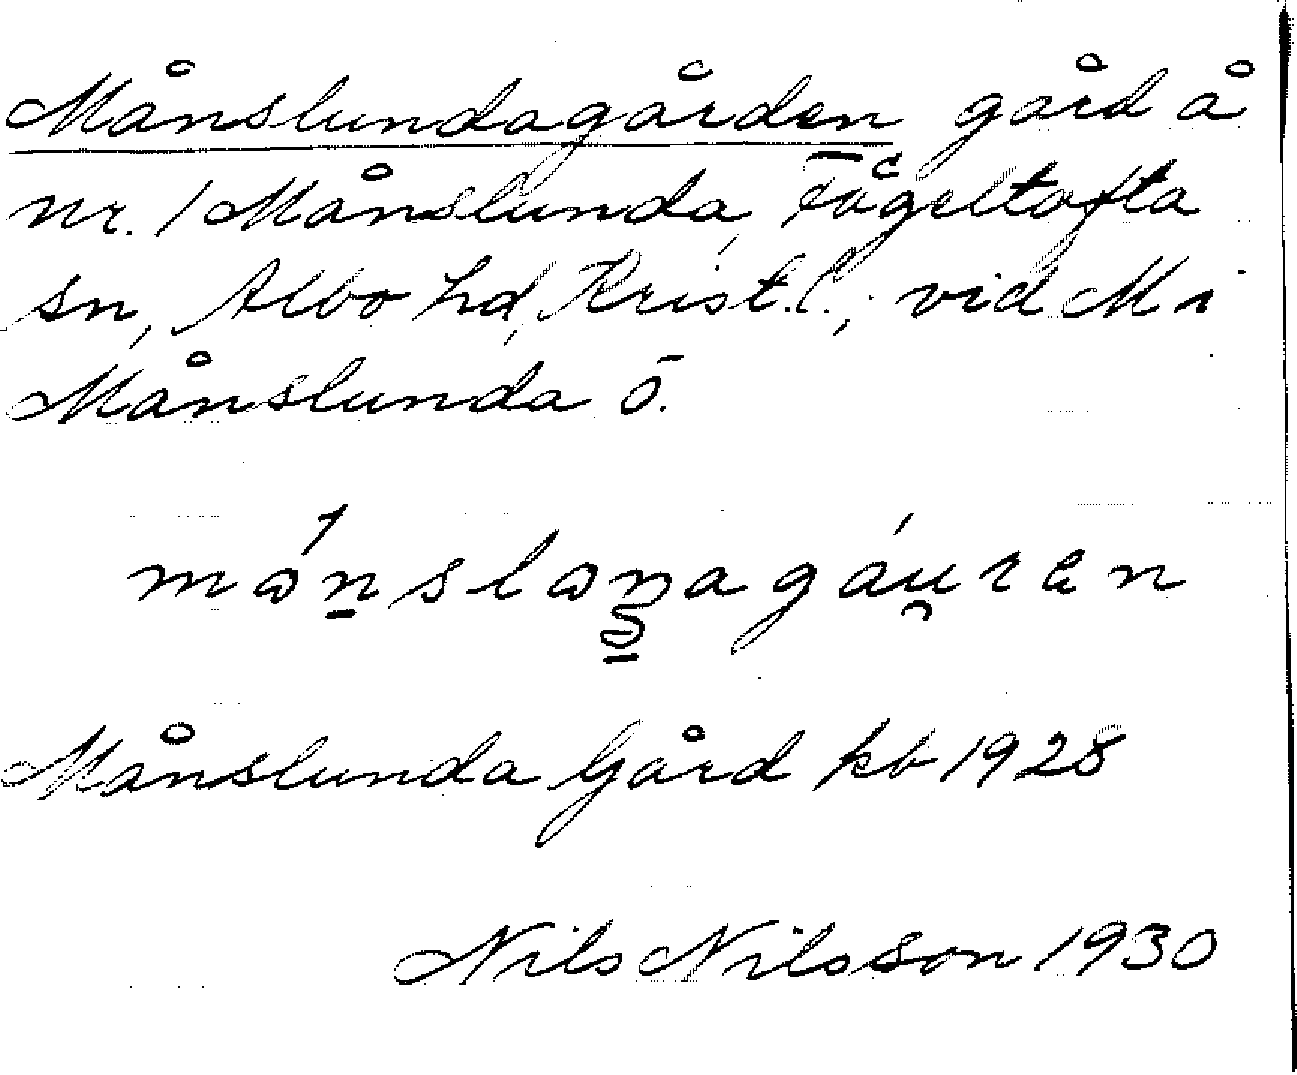 Månslundagården gård å
nr. 1 Månslunda, Fågeltofta
sn, Albo hd, Krist. l.; vid M i
Månslunda ö.
Månslunda Gård kb 1928
Nils Nilsson 1930